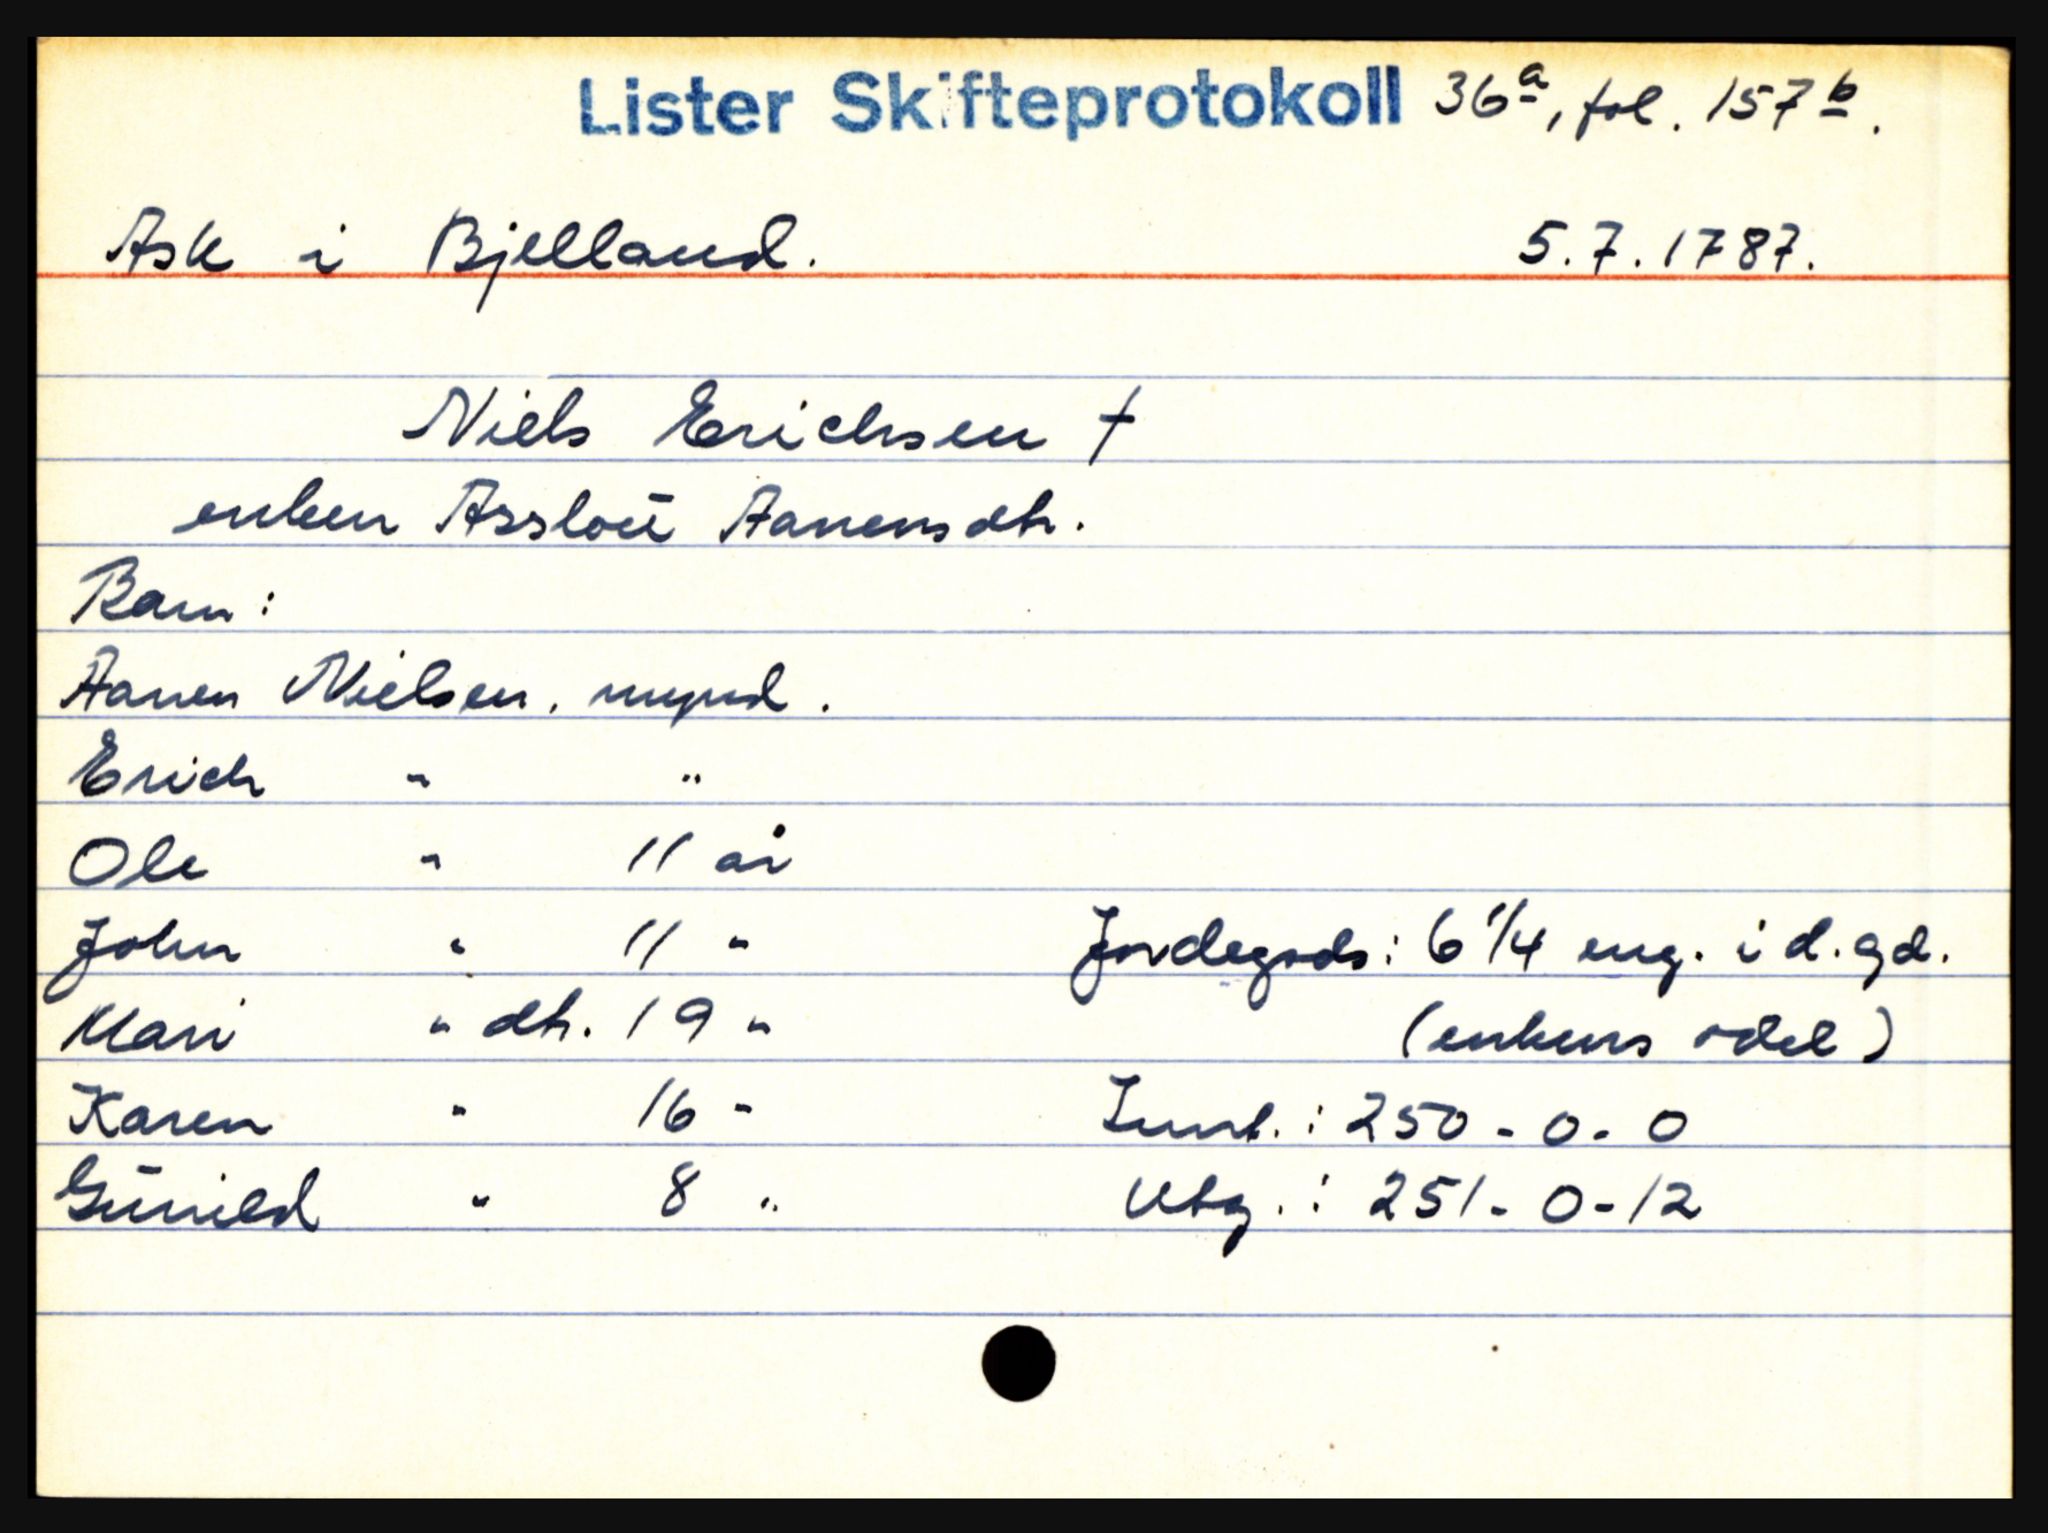 Lister Skifteprotokoll 36a, fol. 157b.
Ask i Bjelland. 5.7.1787.
Niels Erichsen †
enken Asslou Aanensdtr.
Barn:
Aanen Nielsen, mynd.
Erich " "
Ole " 11 år
John " 11 "
Mari " dtr. 19 "
Karen " 16 "
Gunild " 8 "
Jordegods: 6 1/4 eng. i d. gd.
(enkens odel)
Innt.: 250-0-0
Utg.: 251-0-12